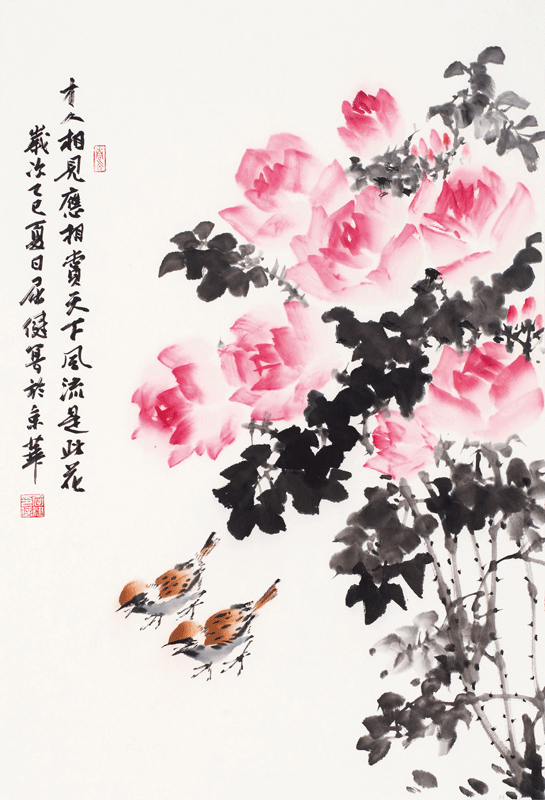 有人相見應相賞天下風流是此花
歲次乙巳夏日屈健寫於京華